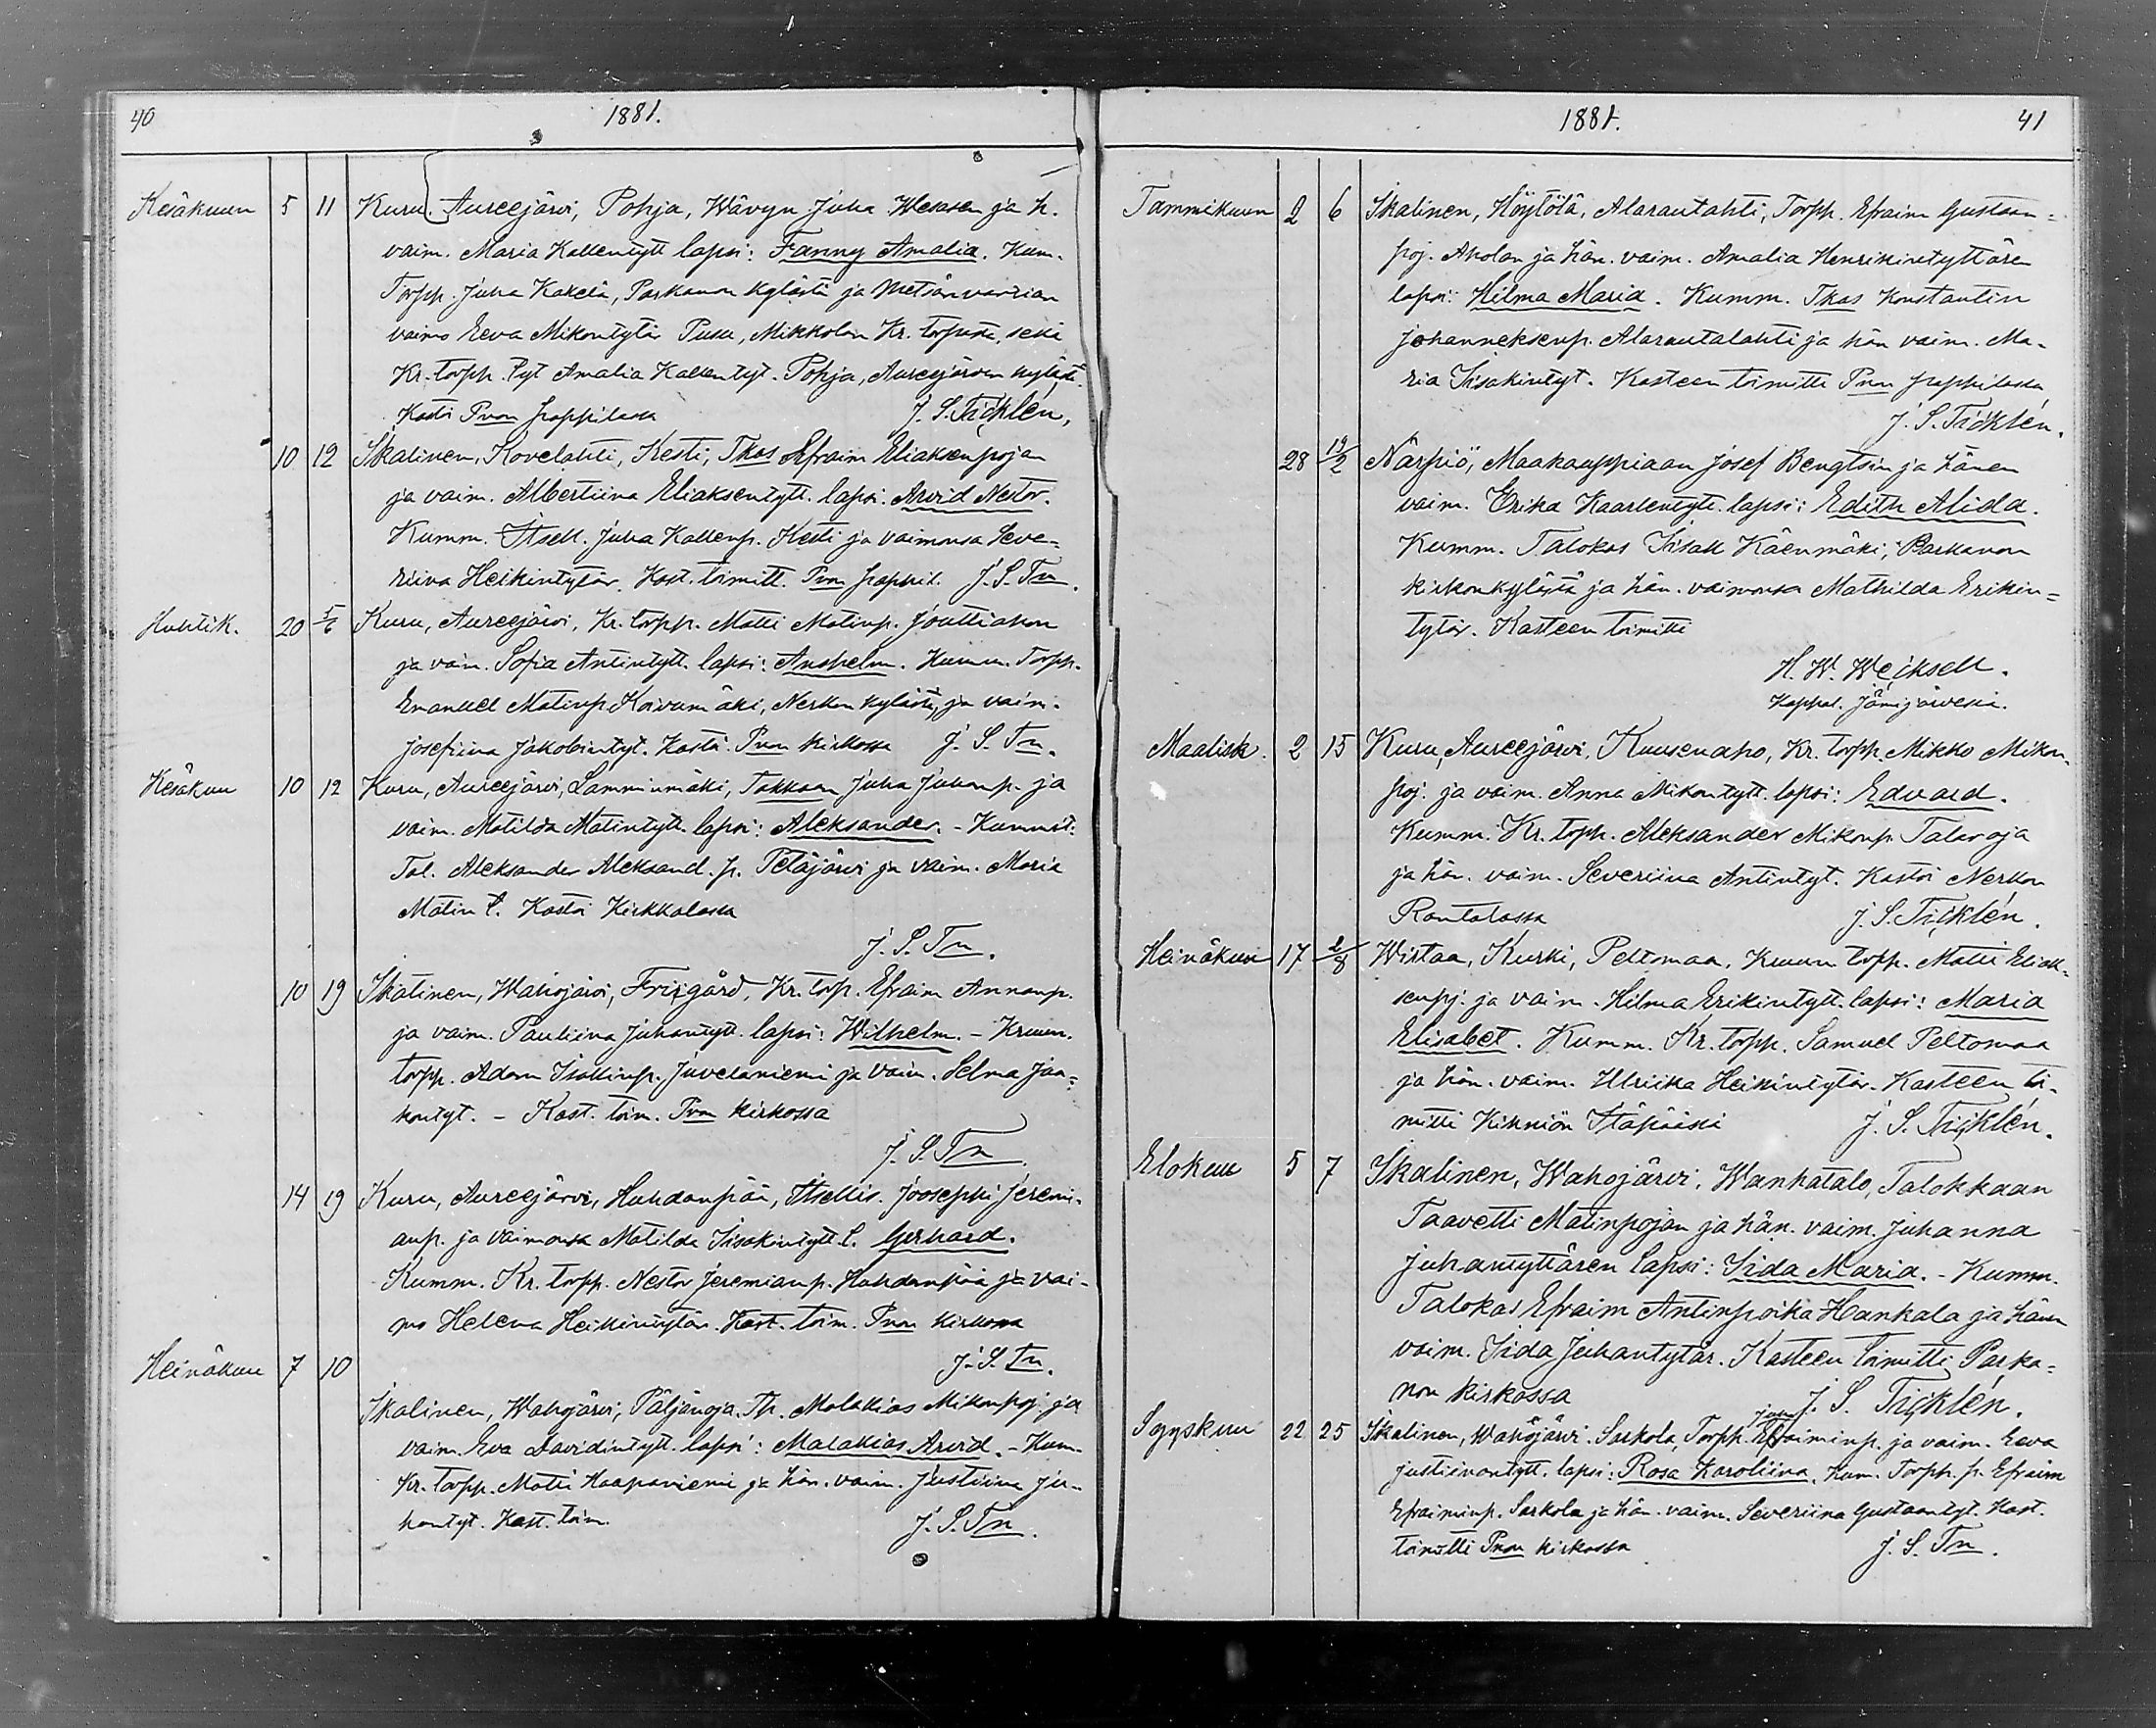 40
1881.
Kesäkuun 5 11 Kuru. Aureejärvi, Pohja, Wävyn Juha Wesasen ja h.
vaim. Maria Kallentytt lapsi: Fanny Amalia. Kum.
Torpp. Juha Kakela, Parkanon kylästä ja Metsänvartian
vaimo Eeva Mikontytär Pusu, Mikkolan Kr. torpasta, sekä
Kr. torpp. tyt Amalia Kallentyt. Pohja, Aureejärven kylästä.
Kastoi Pnon pappilassa J. S. Ticklén,
10 12 Ikalinen, Kovelahti, Kesti, Tkas Efraim Eliaksenpojan
ja vaim. Albertiina Eliaksentytt. lapsi: Arvid Nestor.
Kumm. Itsell. Juha Kallenp. Kesti ja vaimonsa Seve-
riina Heikintytär. Kast. toimitt. Pnon pappil. J. S. Tn.
Huhtik. 20 5/6 Kuru, Aureejärvi, Kr. torpp. Matti Matinp. Jouttiahon
ja vaim. Sofia Antintytt. lapsi: Anshelm. Kumm. Torpp.
Emanuel Matinp. Koivumäki, Nerkon kylästä, ja vaim.
Josefiina Jakobintyt. Kastoi Pnon kirkossa J. S. Tn.
Kesäkuu 10 12 Kuru, Aureejärvi, Lamminmäki, Tokkaan Juha Juhanp. ja
vaim. Matilda Matintytt. lapsi: Aleksander. - Kummit:
Tal. Aleksander Aleksand. p. Petäjärvi ja vaim. Maria
Matin t. Kastoi Kirkkolassa
J. S. Tn.
10 19 Ikalinen, Wahojärvi, Frisgård, Kr. torp. Efraim Annanp.
ja vaim. Pauliina Juhantytt. lapsi: Wilhelm. - Kruun.
torpp. Adam Isakinp. Juvelaniemi ja vaim. Selma Jaa-
kontyt. - Kast. toim. Pnon kirkossa
J. S. Tn
14 19 Kuru, Aureejärvi, Huhdanpää, Itsellis. Jooseppi Jeremi-
anp. ja vaimonsa Matilda Iisakintytt. l. Gerhard.
Kumm. Kr. torpp. Nestor Jeremianp. Huhdanpää ja vai-
mo Helena Heikintytär. Kast. toim. Pnon kirkossa
J. S. Tn.
Heinäkuu 7 10
Ikalinen, Wahojärvi, Päljänoja, Th. Malakias Mikonpoj. ja
vaim. Eva Davidintytt. lapsi: Malakias Arvid. - Kum.
Kr. torpp. Matti Haapaniemi ja hän. vaim. Justiina Ju-
hantyt. Kast. toim. J. S. Tn.
1881.
41
Tammikuun 2 6 Ikalinen, Höytölä, Alarautahti, Torpp. Efraim Gustaan-
poj. Aholan ja hän. vaim. Amalia Henrikintyttären
lapsi: Hilma Maria. Kumm. Tkas Konstantin
Johanneksenp. Alarautalahti ja hän vaim. Ma-
ria Iisakintyt. Kasteen toimitti Pnon pappilassa
J. S. Ticklén.
28 12/2 Närpiö, Maakauppiaan Josef Bengtsin ja hänen
vaim. Erika Kaarlentytt. lapsi: Edith Alida.
Kumm. Talokas Iisak Käenmäki, Parkanon
kirkonkylästä ja hän. vaimonsa Mathilda Erikin-
tytär. Kasteen toimitti
H. W. Weiksell.
Kappal. Jämijärvessä.
Maalisk. 2 15 Kuru, Aureejärvi, Kuusenaho, Kr. torpp. Mikko Mikon
poj. ja vaim. Anna Mikontytt. lapsi: Edvard.
Kumm. Kr. torp. Aleksander Mikonp. Talasoja
ja hän. vaim. Severiina Antintyt. Kastoi Nerkon
Rantalassa J. S. Ticklén.
Heinäkuu 17 2/8 Wirtaa, Kurki, Peltomaa, Kruun torpp. Matti Eliak-
senpj. ja vaim. Hilma Erikintytt. lapsi: Maria
Elisabet. Kumm. Kr. torpp. Samuel Peltomaa
ja hän. vaim. Ulriika Heikintytär. Kasteen toi-
mitti Kihniön Itäpäässä J. S. Ticklén.
Elokuu 5 7 Ikalinen, Wahojärvi, Wanhatalo, Talokkaan
Taavetti Matinpojan ja hän. vaim. Juhanna
Juhantyttären lapsi: Iida Maria. - Kumm.
Talokas Efraim Antinpoika Hankala ja hänen
vaim. Iida Juhantytär. Kasteen toimitti Parka-
non kirkossa J. S. Ticklén.
Syyskuu 22 25 Ikalinen, Wahojärvi. Sarkola, Torpp. Juha Efraiminp. ja vaim. Eeva
Justiinantytt. lapsi: Rosa Karoliina. Kum. Torpp. p. Efraim
Efraiminp. Sarkola ja hän. vaim. Severiina Gustaantyt. Kast.
toimitti Pnon kirkossa J. S. Tn.